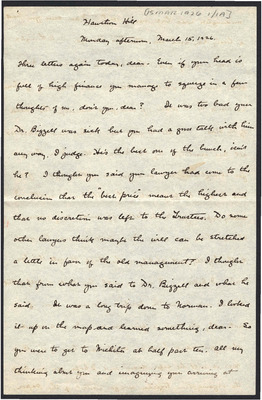 [5MAR1926 1/1A]
Hawston Hill
Monday afternoon, March 15, 1926.
Three letters again today, dear. Even if your head is
full of high finance you manage to squeeze in a few
thoughts of us, don't you, dear? It was too bad your
Dr. Bizzell was sick but you had a good talk with him
any way, I judge. He's the best one of the bunch, isn't
he? I thought you said your lawyer had come to the
conclusion that the "best price" means the highest and
that no discretion was left to the Trustees. Do some
other lawyers think maybe the will can be stretched
a little in favor of the old management? I thought
that from what you said to Dr. Bizzell and what he
said. It was a long trip down to Norman. I looked
it up on the map and learned something, dear. So
you were to get to Wichita at half past ten. All my
thinking about you and imagining your arriving at